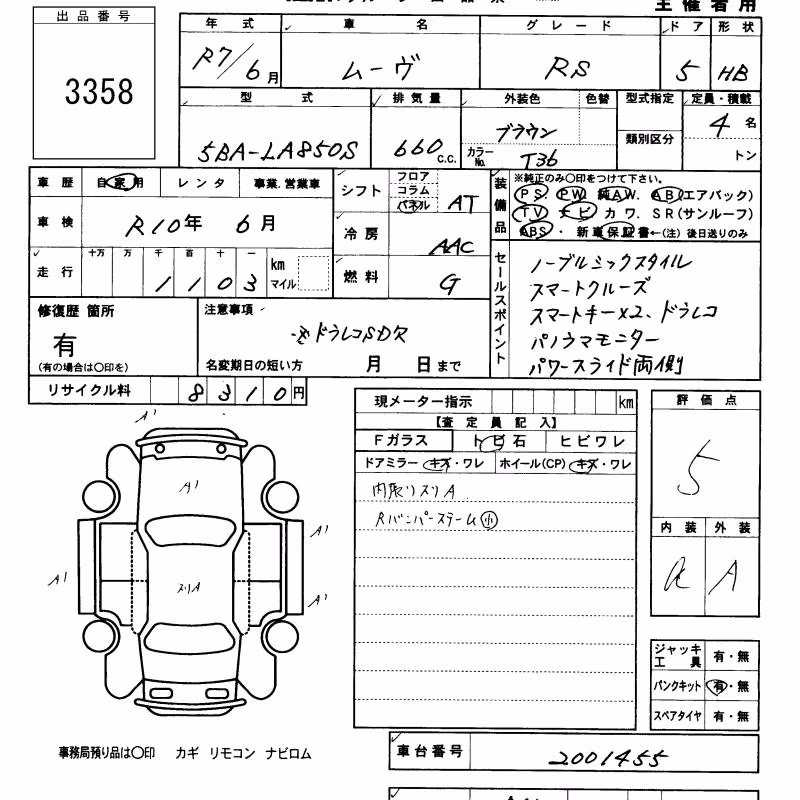 主催者用
出品番号
3358
年式 車名 グレード ドア 形状
R7/6月 ムーヴ RS 5 HB
型式 排気量 外装色 色替 型式指定 定員・積載
5BA-LA850S 660c.c. ブラウン カラーNo. T36 類別区分 4名 トン
車歴 自家用 レンタ 事業.営業車
車検 R10年 6月
走行 十万 万 千 百 十 一
1 1 0 3 km マイル
シフト フロア コラム パネル AT
冷房 AAC
燃料 G
装備品 ※純正のみ〇印をつけて下さい。
PS. PW. 純AW. AB(エアバック)
TV ナビ カワ. SR(サンルーフ)
ABS ・ 新車保証書←(注) 後日送りのみ
セールスポイント
ノーブルミックスタイル
スマートクルーズ
スマートキー×2、ドラレコ
パノラマモニター
パワースライド両側
修復歴 箇所
有
(有の場合は〇印を)
注意事項
ドラレコSDR
名変期日の短い方 月 日まで
リサイクル料 8310円
現メーター指示 km
【査定員記入】
Fガラス トビ石 ヒビワレ
ドアミラー キズ・ワレ ホイール(CP) キズ・ワレ
内張リスリA
Rバンパーステーム小
評価点
5
内装 外装
A A
A1
A1
A1
A1
A1
スリA
ジャッキ工具 有・無
パンクキット 有・無
スペアタイヤ 有・無
事務局預り品は〇印 カギ リモコン ナビロム
車台番号 2001455